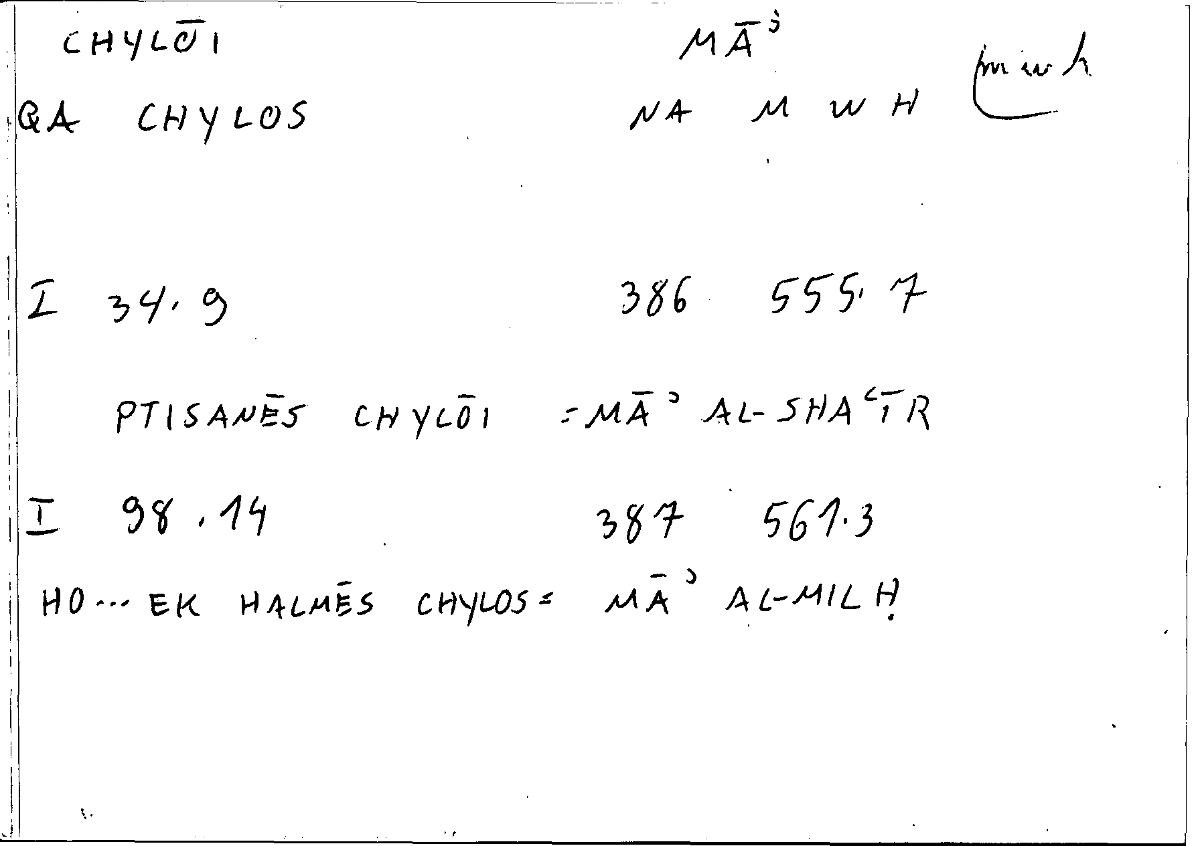 CHYLŌI MĀʾ
QA CHYLOS NA M W H mwh
I 34.9 386 555.7
PTISANĒS CHYLŌI = MĀʾ AL-SHAʿĪR
I 98.14 387 561.3
HO... EK HALMĒS CHYLOS = MĀʾ AL-MILḤ